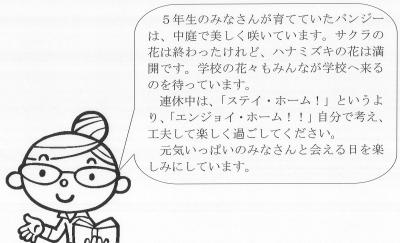 ５年生のみなさんが育てていたパンジー
は、中庭で美しく咲いています。サクラの
花は終わったけれど、ハナミズキの花は満
開です。学校の花々もみんなが学校へ来る
のを待っています。
連休中は、「ステイ・ホーム！」というよ
り、「エンジョイ・ホーム！！」自分で考え、
工夫して楽しく過ごしてください。
元気いっぱいのみなさんと会える日を楽
しみにしています。